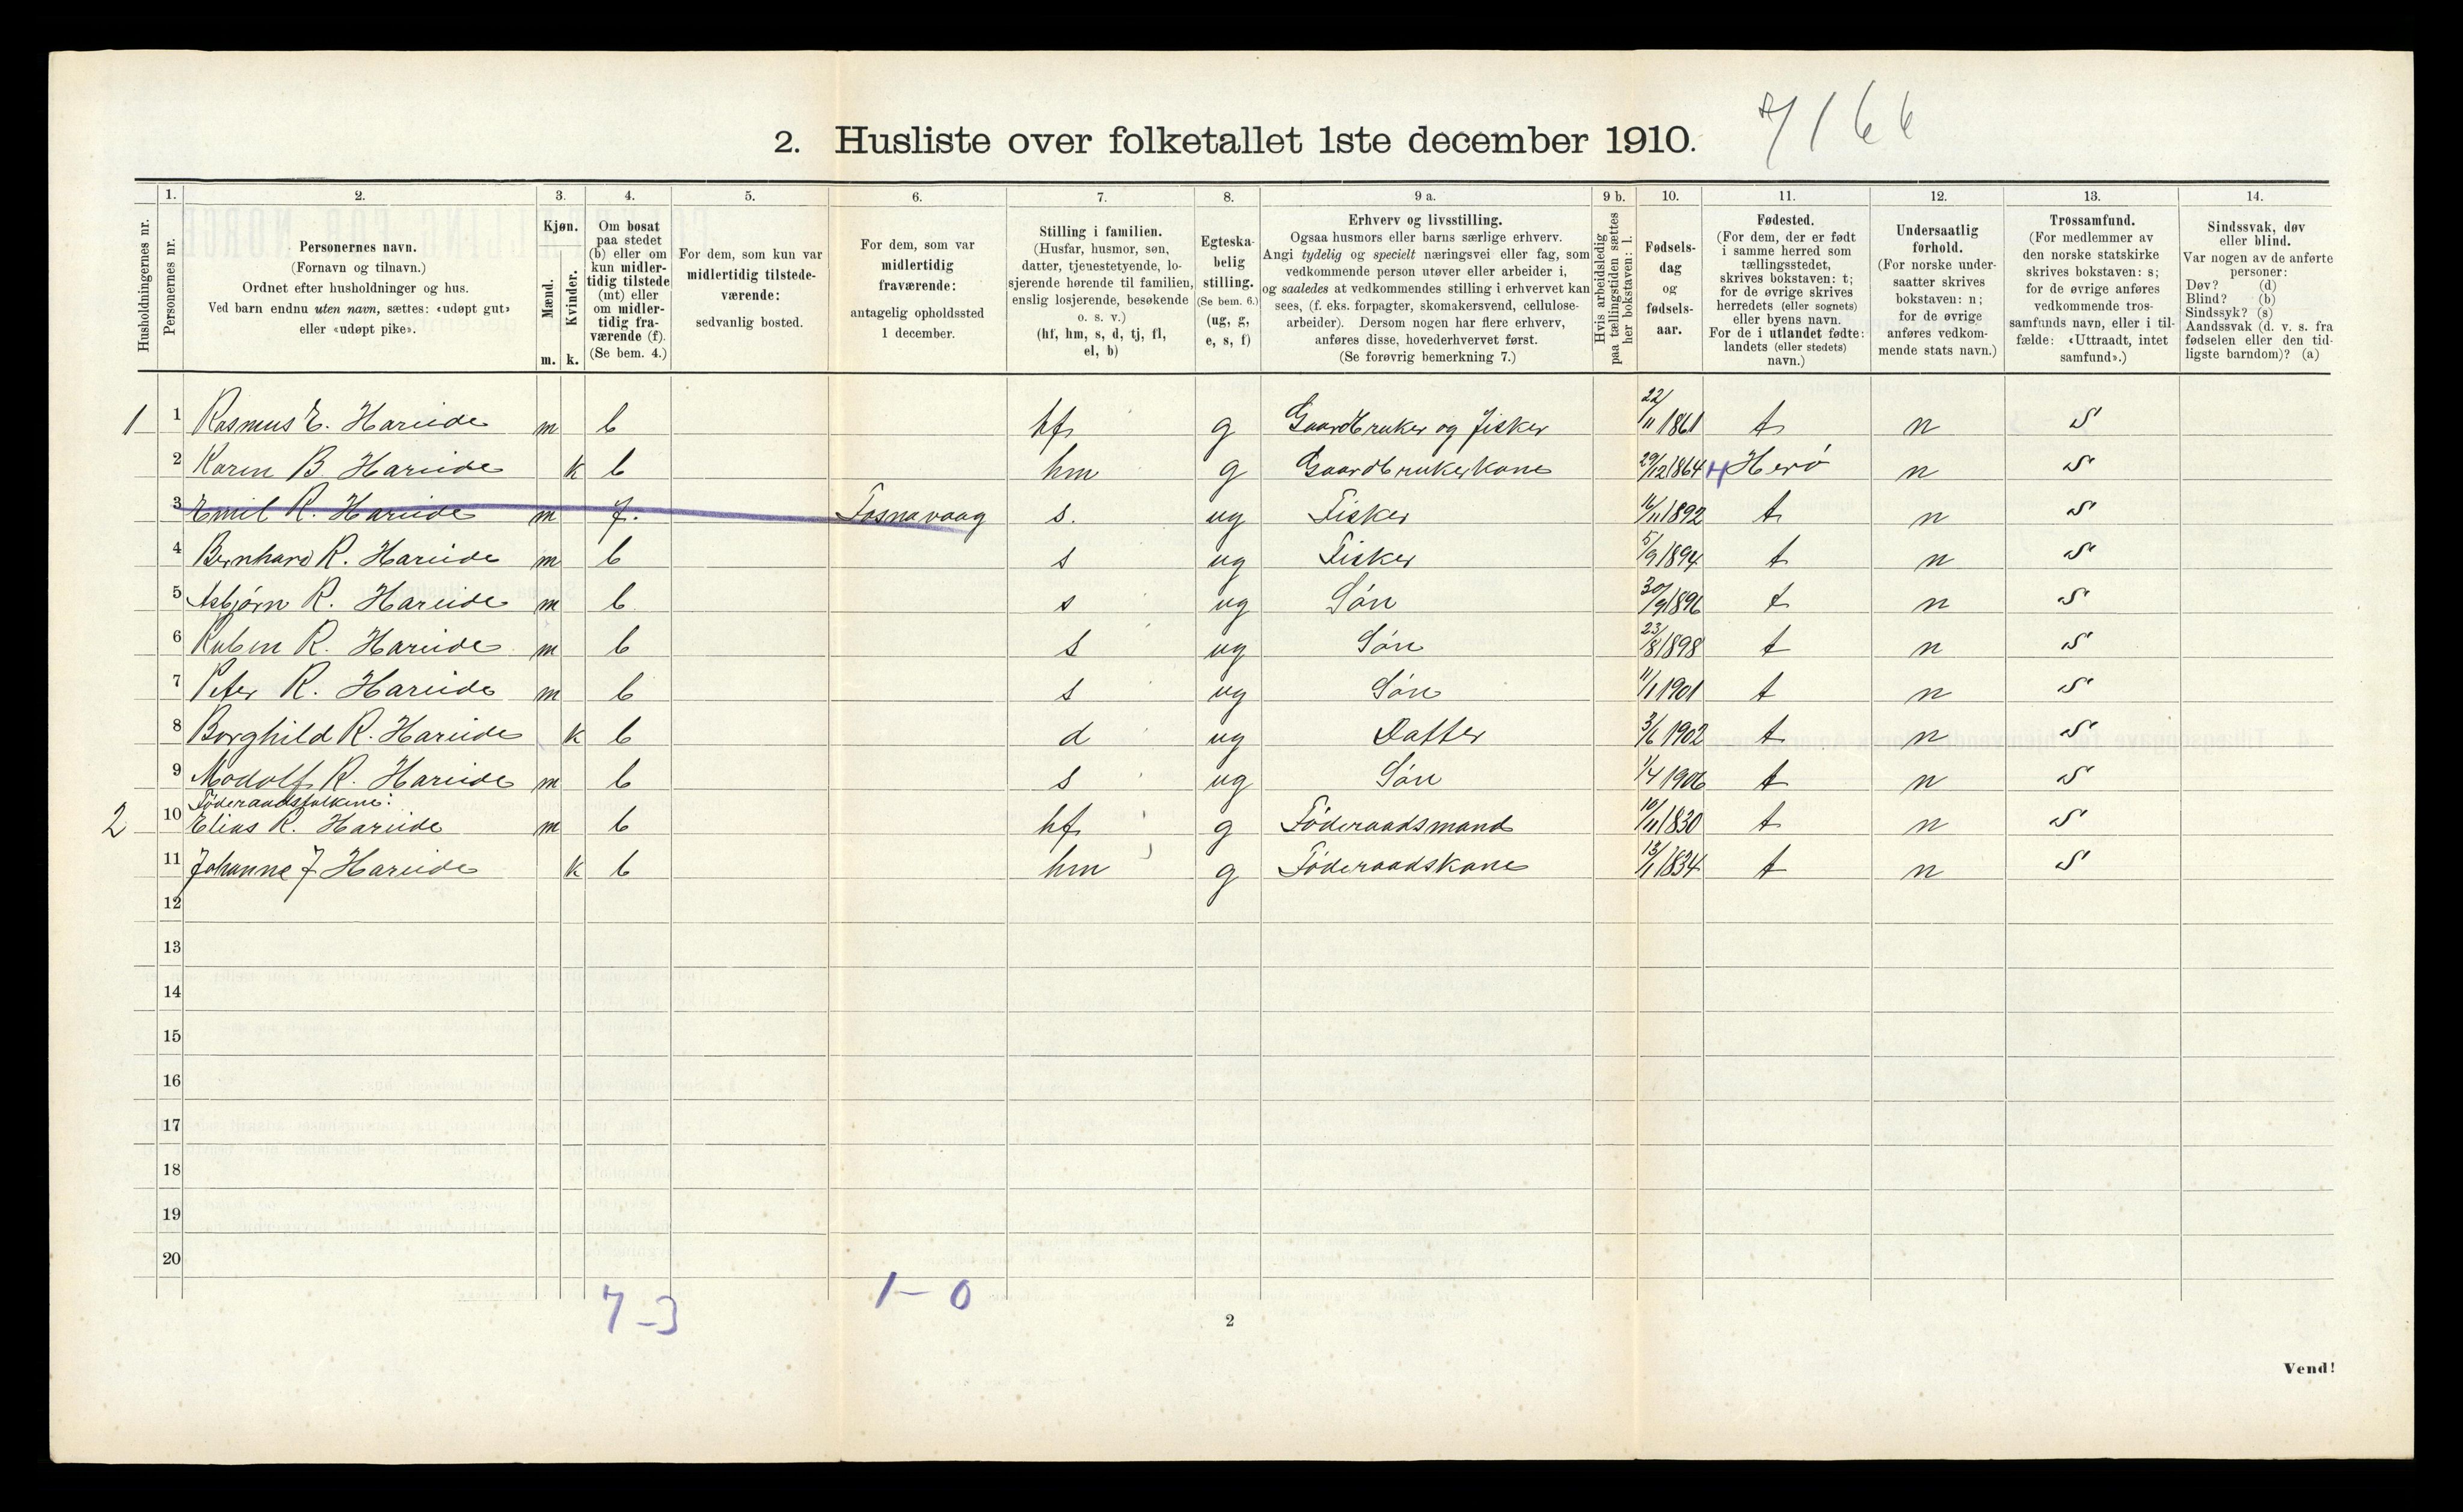 7/66
2. Husliste over folketallet 1ste december 1910.
Husholdningernes nr.
1. Personernes nr.
2. Personernes navn.
(Fornavn og tilnavn.)
Ordnet efter husholdninger og hus.
Ved barn endnu uten navn, sættes: «udøpt gut»
eller «udøpt pike».
3. Kjøn.
Mænd. m.
Kvinder. k.
4. Om bosat
paa stedet
(b) eller om
kun midler-
tidig tilstede
(mt) eller
om midler-
tidig fra-
værende (f).
(Se bem. 4.)
5. For dem, som kun var
midlertidig tilstede-
værende:
sedvanlig bosted.
6. For dem, som var
midlertidig
fraværende:
antagelig opholdssted
1 december.
7. Stilling i familien.
(Husfar, husmor, søn,
datter, tjenestetyende, lo-
sjerende hørende til familien,
enslig losjerende, besøkende
o. s. v.)
(hf, hm, s, d, tj, fl,
el, b)
8. Egteska-
belig
stilling.
(Se bem. 6.)
(ug, g,
e, s, f)
9 a. Erhverv og livsstilling.
Ogsaa husmors eller barns særlige erhverv.
Angi tydelig og specielt næringsvei eller fag, som
vedkommende person utøver eller arbeider i,
og saaledes at vedkommendes stilling i erhvervet kan
sees, (f. eks. forpagter, skomakersvend, cellulose-
arbeider). Dersom nogen har flere erhverv,
anføres disse, hovederhvervet først.
(Se forøvrig bemerkning 7.)
9 b. Hvis arbeidsledig
paa tællingstiden sættes
her bokstaven: l.
10. Fødsels-
dag
og
fødsels-
aar.
11. Fødested.
(For dem, der er født
i samme herred som
tællingsstedet,
skrives bokstaven: t;
for de øvrige skrives
herredets (eller sognets)
eller byens navn.
For de i utlandet fødte:
landets (eller stedets)
navn.)
12. Undersaatlig
forhold.
(For norske under-
saatter skrives
bokstaven: n;
for de øvrige
anføres vedkom-
mende stats navn.)
13. Trossamfund.
(For medlemmer av
den norske statskirke
skrives bokstaven: s;
for de øvrige anføres
vedkommende tros-
samfunds navn, eller i til-
fælde: «Uttraadt, intet
samfund».)
14. Sindssvak, døv
eller blind.
Var nogen av de anførte
personer:
Døv? (d)
Blind? (b)
Sindssyk? (s)
Aandssvak (d. v. s. fra
fødselen eller den tid-
ligste barndom)? (a)
1 1 Rasmus E. Hareide m b hf g Gaardbruker og fisker 22/11 1861 t n S
2 Karen B Hareide k b hm g Gaardbrukerkone 29/12 1864 H Herø n S
3 Emil R. Hareide m f. Fosnavaag s. ug Fisker 16/11 1892 t n S
4 Bernhard R. Hareide m b s ug Fisker 5/9 1894 t n S
5 Asbjørn R. Hareide m b s ug Søn 30/9 1896 t n S
6 Ruben R. Hareide m b s ug Søn 23/8 1898 t n S
7 Peter R. Hareide m b s ug Søn 11/1 1901 t n S
8 Borghild R. Hareide k b d ug Datter 3/6 1902 t n S
9 Modolf R. Hareide m b s ug Søn 1/4 1906 t n S
Føderaadsfolkene:
2 10 Elias R. Hareide m b hf g Føderaadsmand 10/11 1830 t n S
11 Johanne J Hareide k b hm g Føderaadskone 13/1 1834 t n S
12
13
14
15
16
17
18
19
20
7-3
1-0
2
Vend!